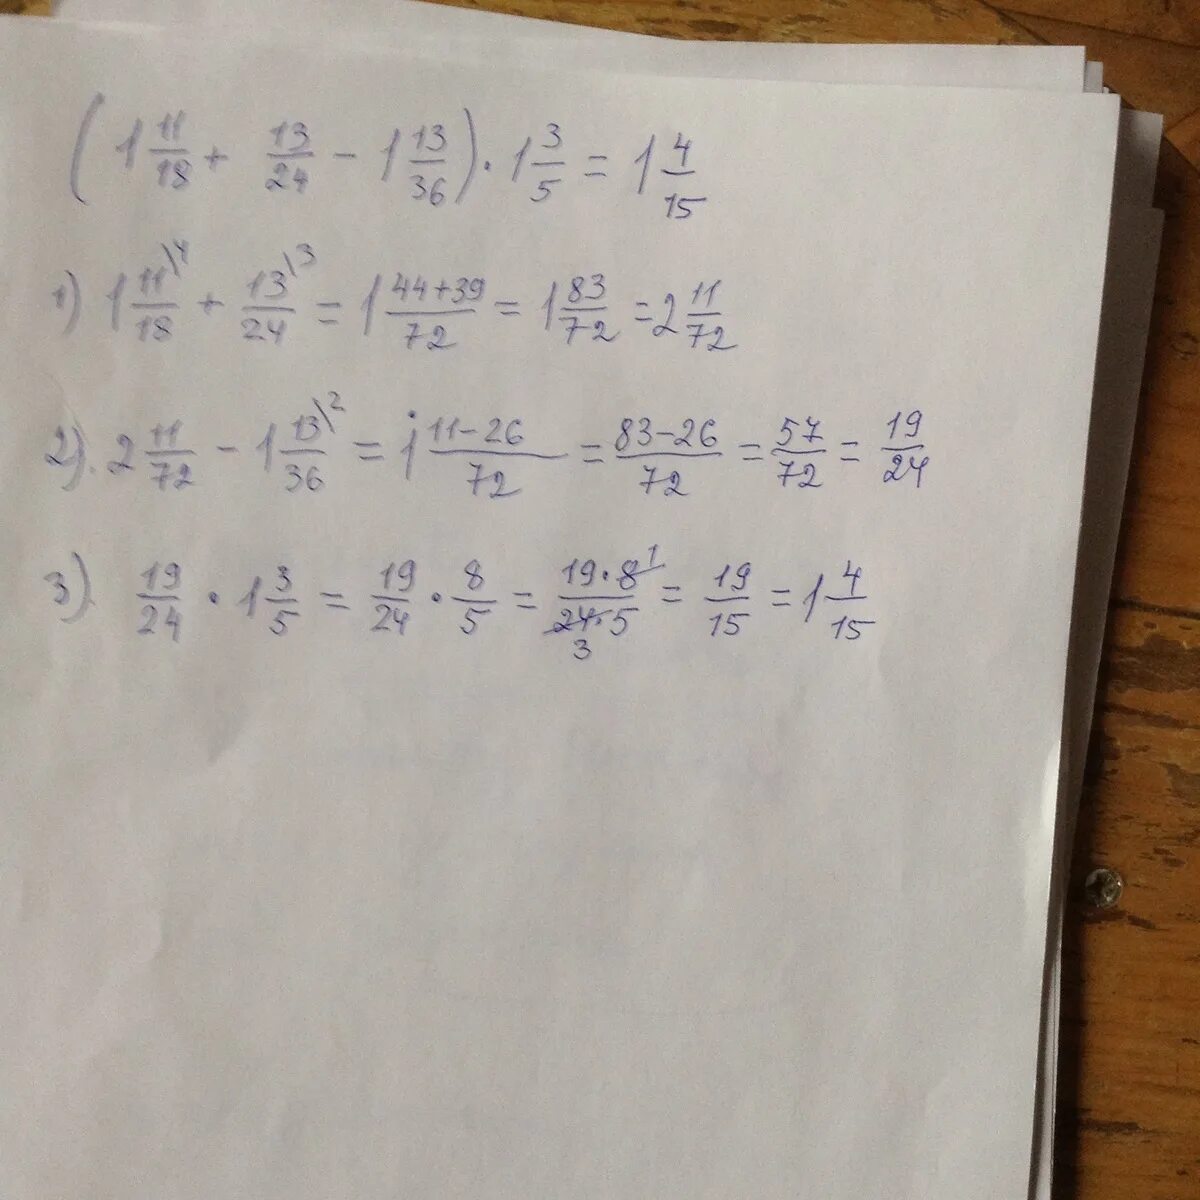 (1 11/18 + 13/24 - 1 13/36) · 1 3/5 = 1 4/15
1) 1 11\4/18 + 13\3/24 = 1 44+39/72 = 1 83/72 = 2 11/72
2). 2 11/72 - 1 13\2/36 = 1 11-26/72 = 83-26/72 = 57/72 = 19/24
3). 19/24 · 1 3/5 = 19/24 · 8/5 = 19·8 1/24·5 3 = 19/15 = 1 4/15